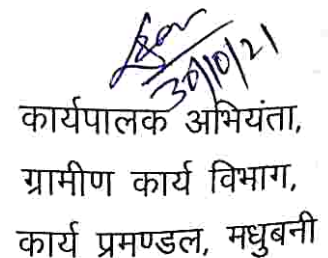 30/10/21
कार्यपालक अभियंता,
ग्रामीण कार्य विभाग,
कार्य प्रमण्डल, मधुबनी